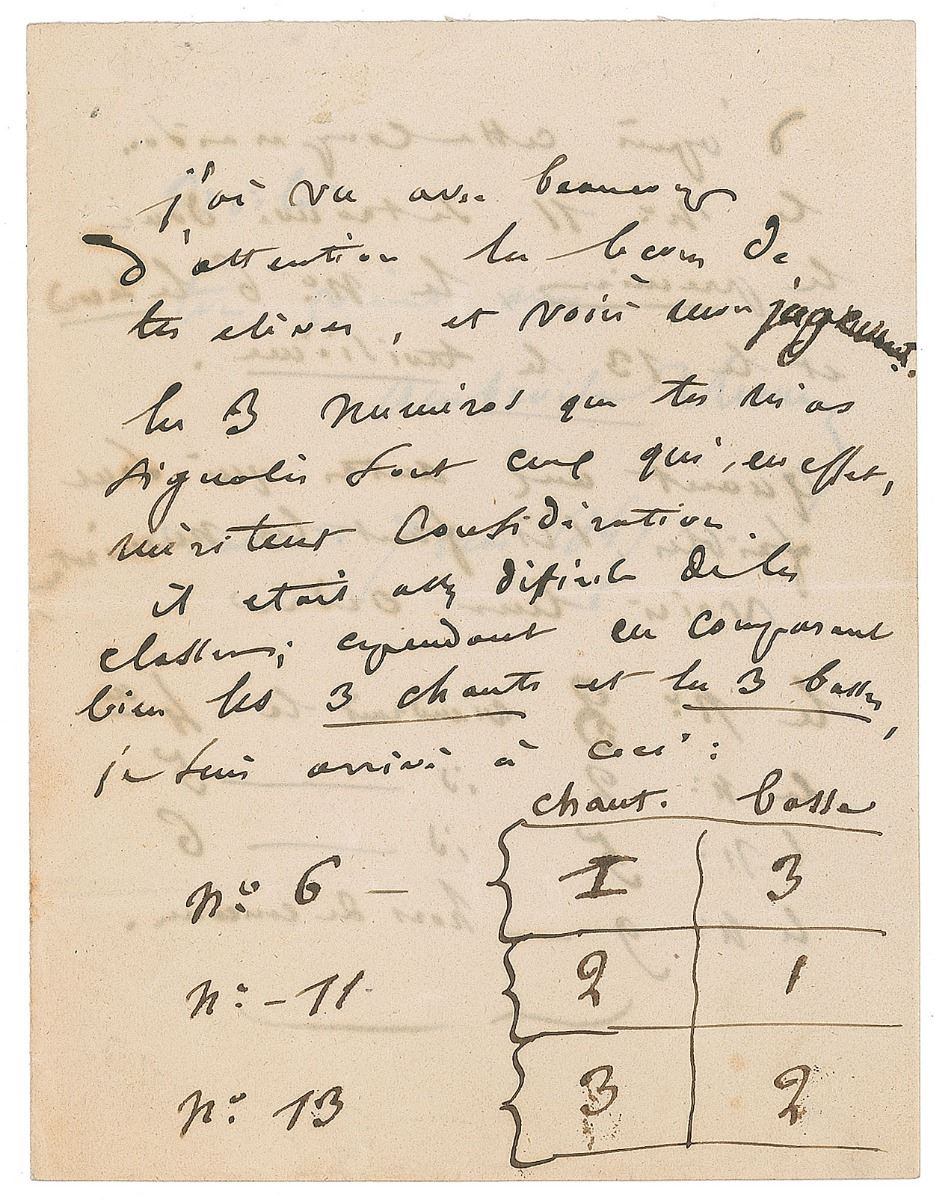 j'ai vu avec beaucoup
d'attention la leçon de
tes elèves, et voici mon jugement.
les 3 numéros que tu m'as
signalés sont ceux qui, en effet,
méritent Considération
il etait assez dificile de les
classer; cependant en comparant
bien les 3 chants et les 3 basses,
je suis arrivé à ceci :
chant. basse
nº 6 — 1 3
nº - 11 2 1
nº 13 3 2